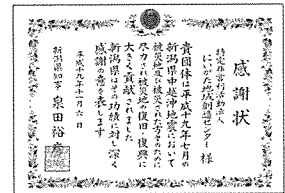 感謝状
特定非営利活動法人
にいがた地域創造センター 様
貴団体は平成十九年七月の
新潟県中越沖地震において
被災地及び被災された方々のために
尽力され被災地の復旧・復興に
大きく貢献されました
新潟県はその功績に対し深く
感謝の意を表します
平成十九年十一月六日
新潟県知事 泉田裕彦